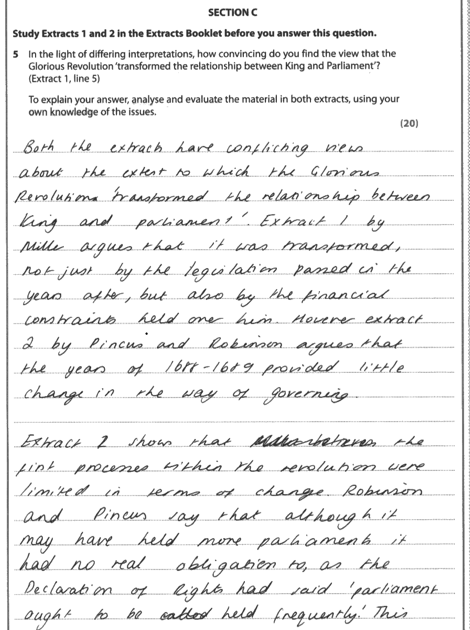 SECTION C
Study Extracts 1 and 2 in the Extracts Booklet before you answer this question.
5 In the light of differing interpretations, how convincing do you find the view that the
Glorious Revolution 'transformed the relationship between King and Parliament'?
(Extract 1, line 5)
To explain your answer, analyse and evaluate the material in both extracts, using your
own knowledge of the issues.
(20)
Both the extracts have conflicting views
about the extent to which the Glorious
Revolution 'transformed the relationship between
King and parliament'. Extract 1 by
Miller argues that it was transformed,
not just by the legislation passed in the
years after, but also by the financial
constraints held over him. However extract
2 by Pincus and Robinson argues that
the years of 1688-1689 provided little
change in the way of governing.
Extract 2 shows that the
first processes within the revolution were
limited in terms of change. Robinson
and Pincus say that although it
may have held more parliaments it
had no real obligation to, as the
Declaration of Rights had said 'parliament
ought to be held frequently.' This